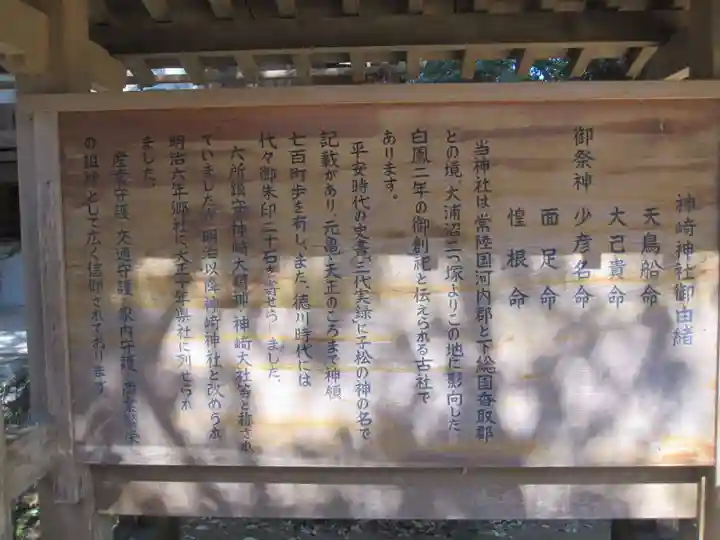 神崎神社御由緒
天鳥船命
大己貴命
御祭神 少彦名命
面足命
惶根命
当神社は常陸国河内郡と下総国香取郡
との境、大浦沼二つ塚よりこの地に影向した
白鳳二年の御創祀と伝えられる古社で
あります。
平安時代の史書「三代実録」に子松の神の名で
記載があり、元亀・天正のころまで神領
七百町歩を有し、また、徳川時代には
代々御朱印二十石を寄せら ました。
六所鎮守神崎大明神・神崎大社等と称され
ていましたが明治以降神崎神社と改められ
明治六年郷社に、大正十年県社に列せられ
ました。
産業守護、交通守護、家内守護、
の祖神として広く信仰されております